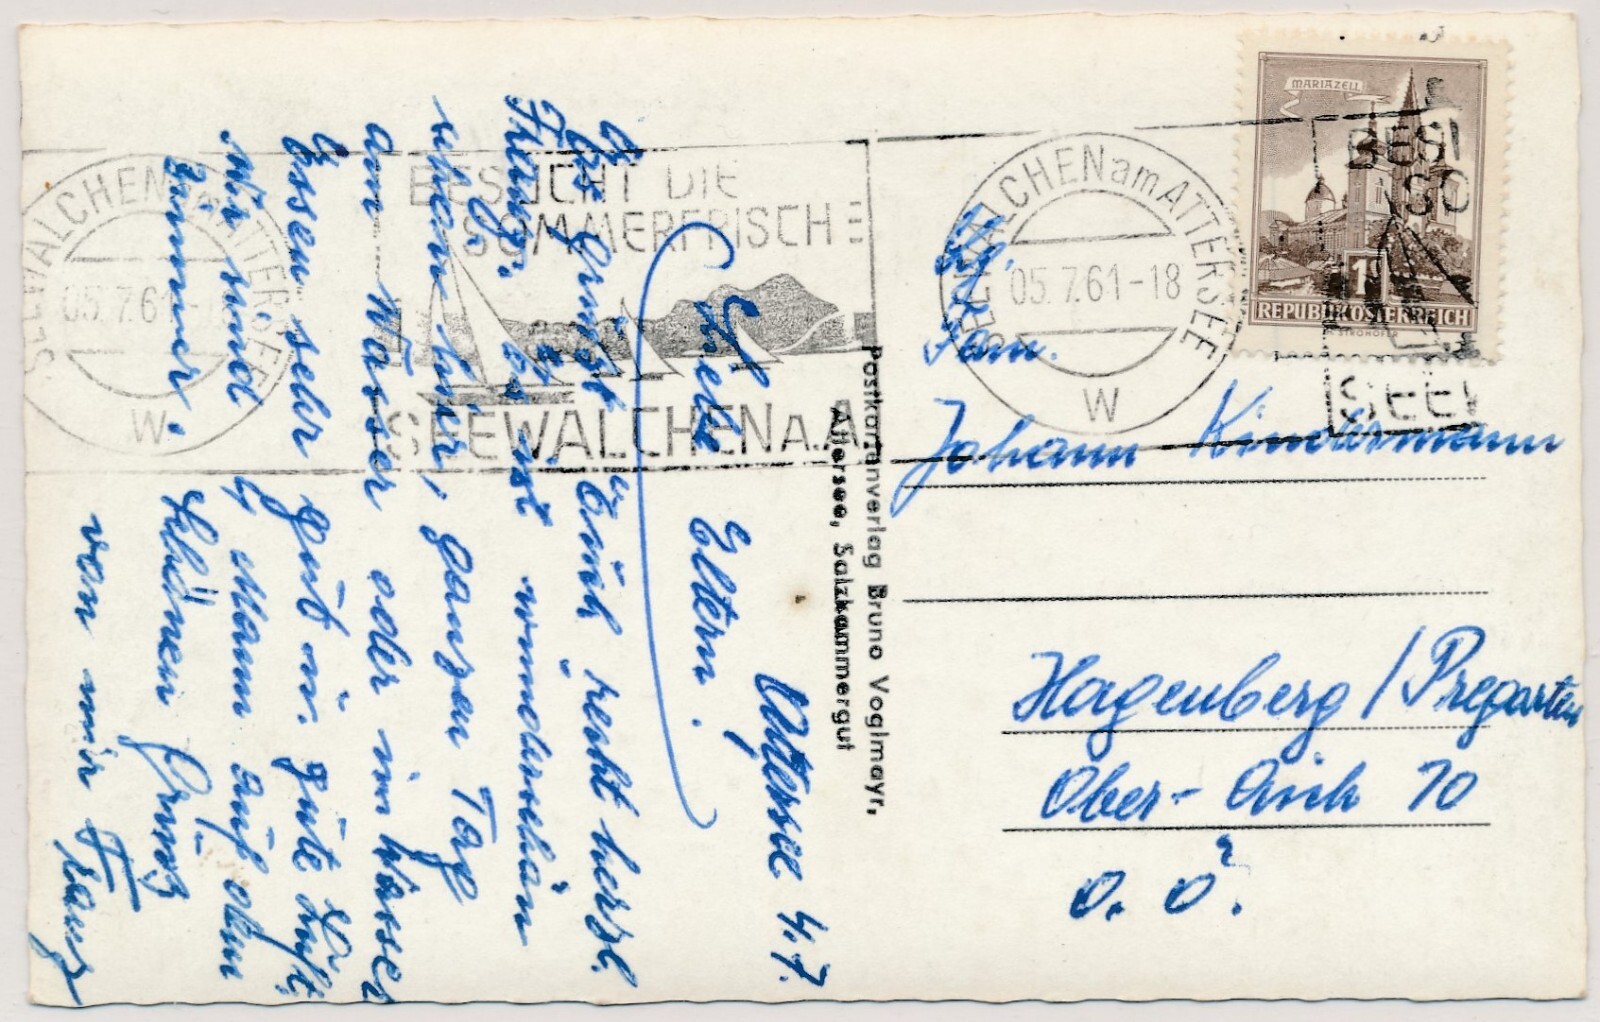 Attersee 4.7.
Liebe Eltern!
Es grüßt Euch recht herzl.
Franzi. Es ist wunderschön
schön hier, ganzen Tag
am Wasser oder im Wasser
Essen sehr gut u. gute Luft
Wir sind 4 Mann auf dem
Zimmer,
schönen Gruß
von mir Franz
Postkartenverlag Bruno Voglmayr,
Attersee, Salzkammergut
SEEWALCHEN am ATTERSEE
05.7.61-18
W
BESUCHT DIE
SOMMERFRISCHE
SEEWALCHEN A.A.
SEEWALCHEN am ATTERSEE
05.7.61-18
W
MARIAZELL
1S
REPUBLIK ÖSTERREICH
BESU
SO
SEEW
Fam.
Johann Kindermann
Hagenberg / Pregarten
Ober-Aich 70
O. Ö.